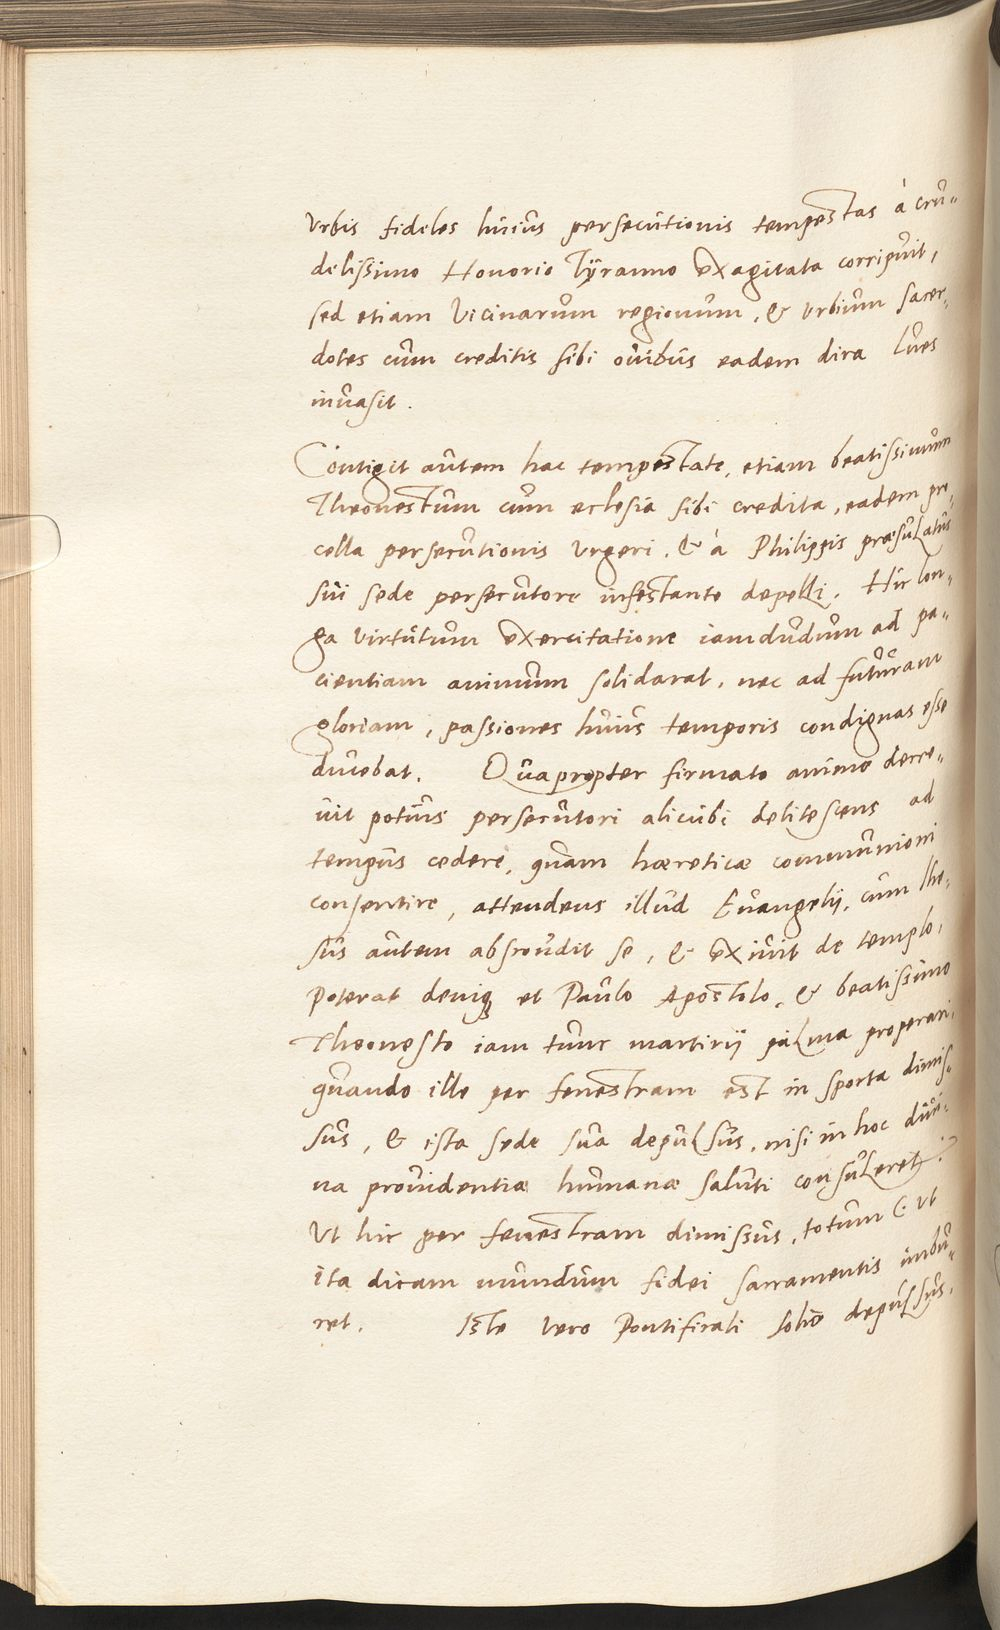 Vrbis fideles huius persecutionis tempestas à cru-
delissimo Honorio Tÿranno exagitata corripuit,
sed etiam Vicinarum regionum, & Vrbium sacer-
dotes cum creditis sibi ouibus eadem dira lues
inuasit.
Contigit autem hac tempestate, etiam beatissimum
Theonestum cum eclesia sibi credita, eadem pro-
cella persecutionis Vrgeri, & à Philippis præsulatus
sui sede persecutore infestante depelli. Hic lon-
ga virtutum exercitatione iamdudum ad pa-
cientiam animum solidarat, nec ad futuram
gloriam, passiones huius temporis condignas esse
ducebat. Quapropter firmato animo decre-
uit potius persecutori alicubi delitescens ad
tempus cedere, quam hæreticæ communioni
consentire, attendens illud Euangelij, cum Ihe-
sus autem abscondit se, & exiuit de templo,
Poterat deniq; et Paulo Apostolo, & beatissimo
Theonesto iam tunc martirij palma properari,
quando ille per fenestram est in sporta dimis-
sus, & ista sede sua depulsus, nisi in hoc diui-
na prouidentia humanæ saluti consuleret:
Vt hic per fenestram dimissus, totum (: vt
ita dicam mundum fidei sacramentis imbu-
ret. Iste vero Pontificali solio depulsus,